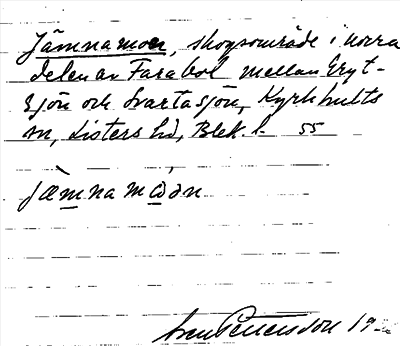 Jämnamoen, skogsområde i norra
delen av Farabol mellan Gryt-
sjön och Svartasjön, Kyrkhults
sn, Listers hd, Blek. l. 55
jæmnamådn
Sven Petersson 19